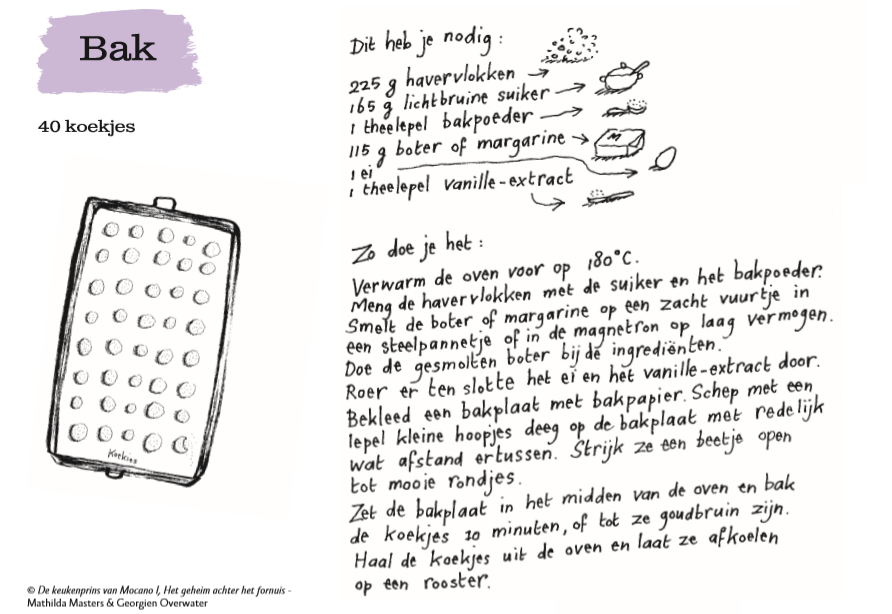 Bak
40 koekjes
Koekjes
© De keukenprins van Mocano I, Het geheim achter het fornuis -
Mathilda Masters & Georgien Overwater
Dit heb je nodig:
225 g havervlokken
165 g lichtbruine suiker
1 theelepel bakpoeder
115 g boter of margarine
M
1 ei
1 theelepel vanille-extract
Zo doe je het:
Verwarm de oven voor op 180°C.
Meng de havervlokken met de suiker en het bakpoeder.
Smelt de boter of margarine op een zacht vuurtje in
een steelpannetje of in de magnetron op laag vermogen.
Doe de gesmolten boter bij de ingrediënten.
Roer er ten slotte het ei en het vanille-extract door.
Bekleed een bakplaat met bakpapier. Schep met een
lepel kleine hoopjes deeg op de bakplaat met redelijk
wat afstand ertussen. Strijk ze een beetje open
tot mooie rondjes.
Zet de bakplaat in het midden van de oven en bak
de koekjes 10 minuten, of tot ze goudbruin zijn.
Haal de koekjes uit de oven en laat ze afkoelen
op een rooster.